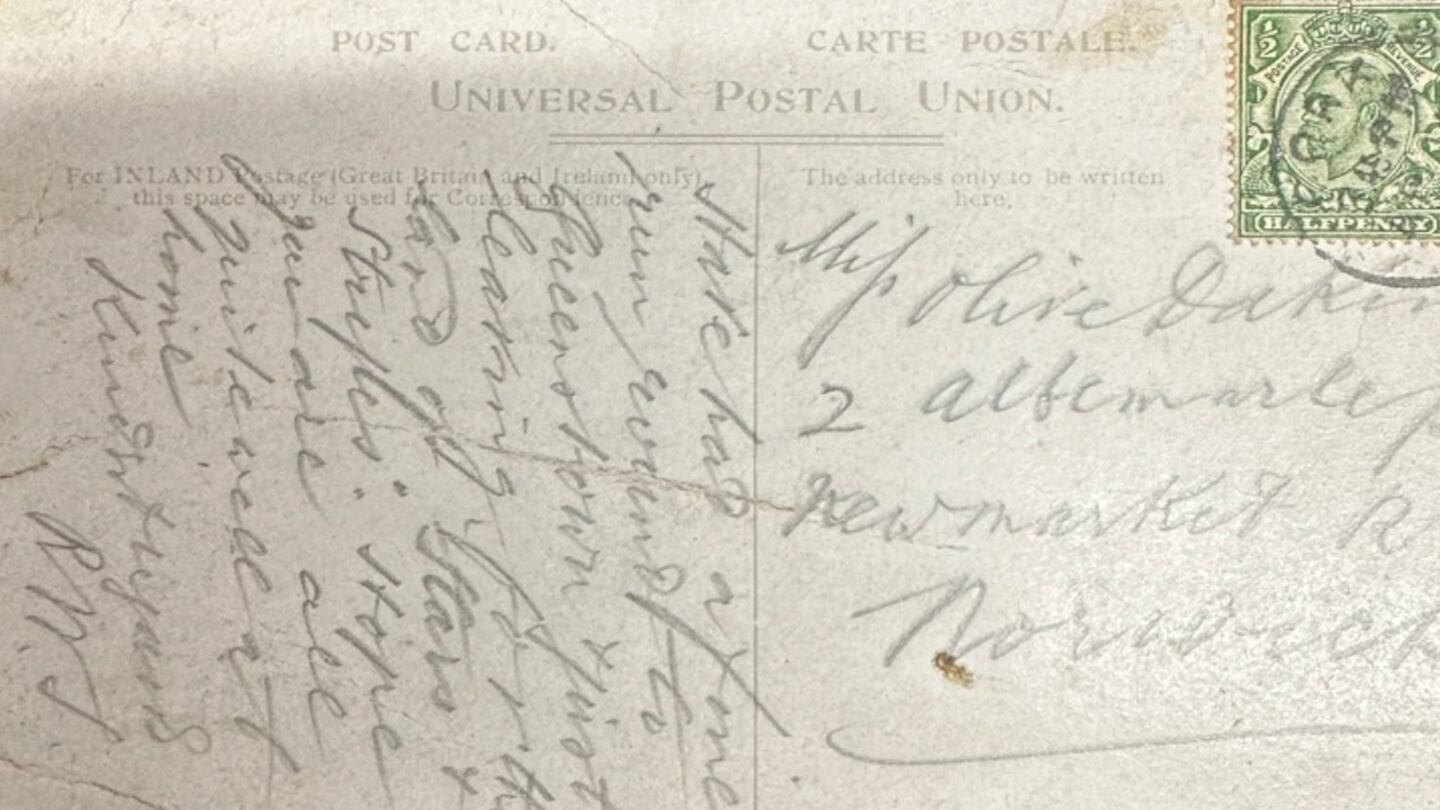 POST CARD. CARTE POSTALE.
UNIVERSAL POSTAL UNION.
For INLAND Postage (Great Britain and Ireland only)
this space may be used for Correspondence.
The address only to be written
here.
½ ½
POSTAGE REVENUE
HALFPENNY
Have had a fine
run round to
Queenstown & just
leaving for the
land of "Stars &
Stripes". Hope
you are all
quite well at
home
Kindest regards
Miss Olive Dakin
2 Albemarle
Newmarket R
Norwich